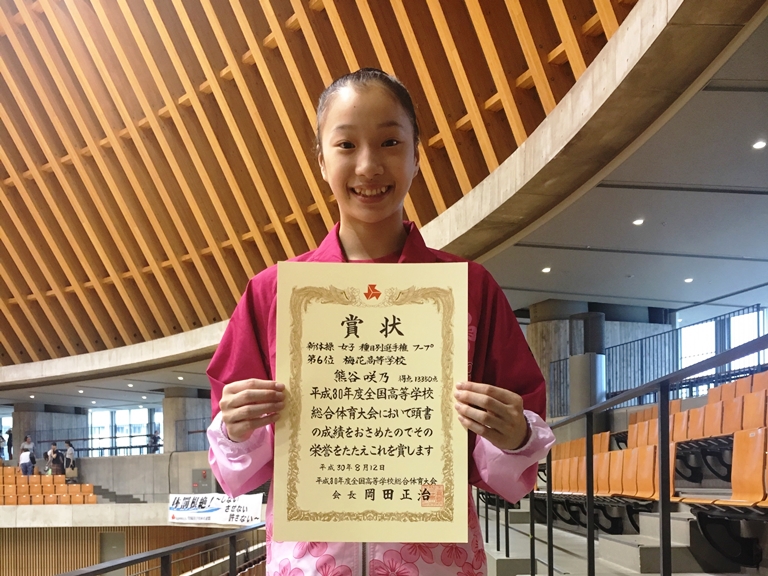 賞状
新体操 女子 種目別選手権 フープ
第6位 梅花高等学校
熊谷咲乃 得点 13350点
平成30年度全国高等学校
総合体育大会において頭書
の成績をおさめたのでその
栄誉をたたえこれを賞します
平成30年8月12日
平成30年度全国高等学校総合体育大会
会長 岡田正治
体罰根絶!~しない
させない
許さない~